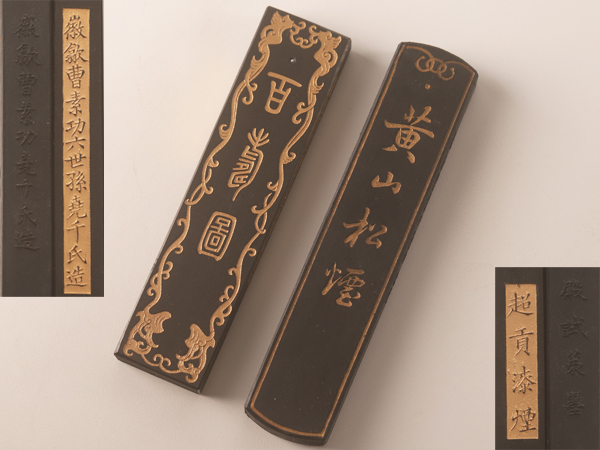 徽歙曹素功堯千氏造
徽歙曹素功六世孫堯千氏造
百壽圖
黃山松煙
超貢漆煙
殿試策墨